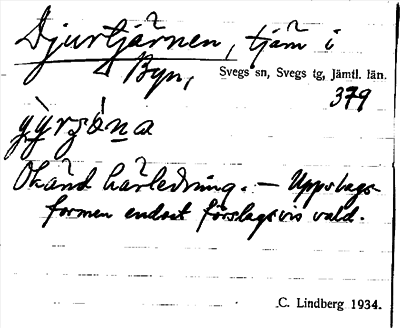 Djurtjärnen, tjärn i
Byn, Svegs sn, Svegs tg, Jämtl. län.
379
Okänd härledning. — Uppslags-
formen endast förslagsvis vald.
C. Lindberg 1934.